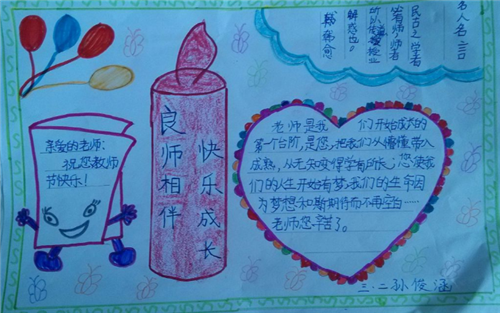 名人名言
古之学者
必有师，师者
所以传道授业
解惑也。
韩愈
亲爱的老师：
祝您教师
节快乐！
良师相伴
快乐成长
老师是我们开始成长的
第一个台阶，是您，把我们从懵懂带入
成熟，从无知变得学有所长；您使我
们的人生开始有梦，我们的生命因
为梦想和期待而不再空白……
老师您辛苦了。
三.二孙俊涵